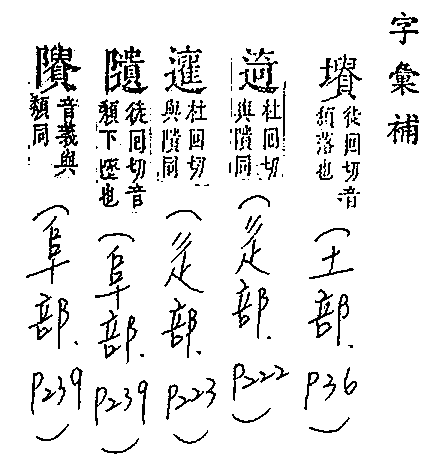 字彙補
墤
徒回切音
頽落也
(土部. P36)
杜回切
與隤同
(辵部. P222)
杜回切
與隤同
(辵部. P223)
徒回切音
頹下墜也
(阜部. P239)
音義與
頹同
(阜部. P239)